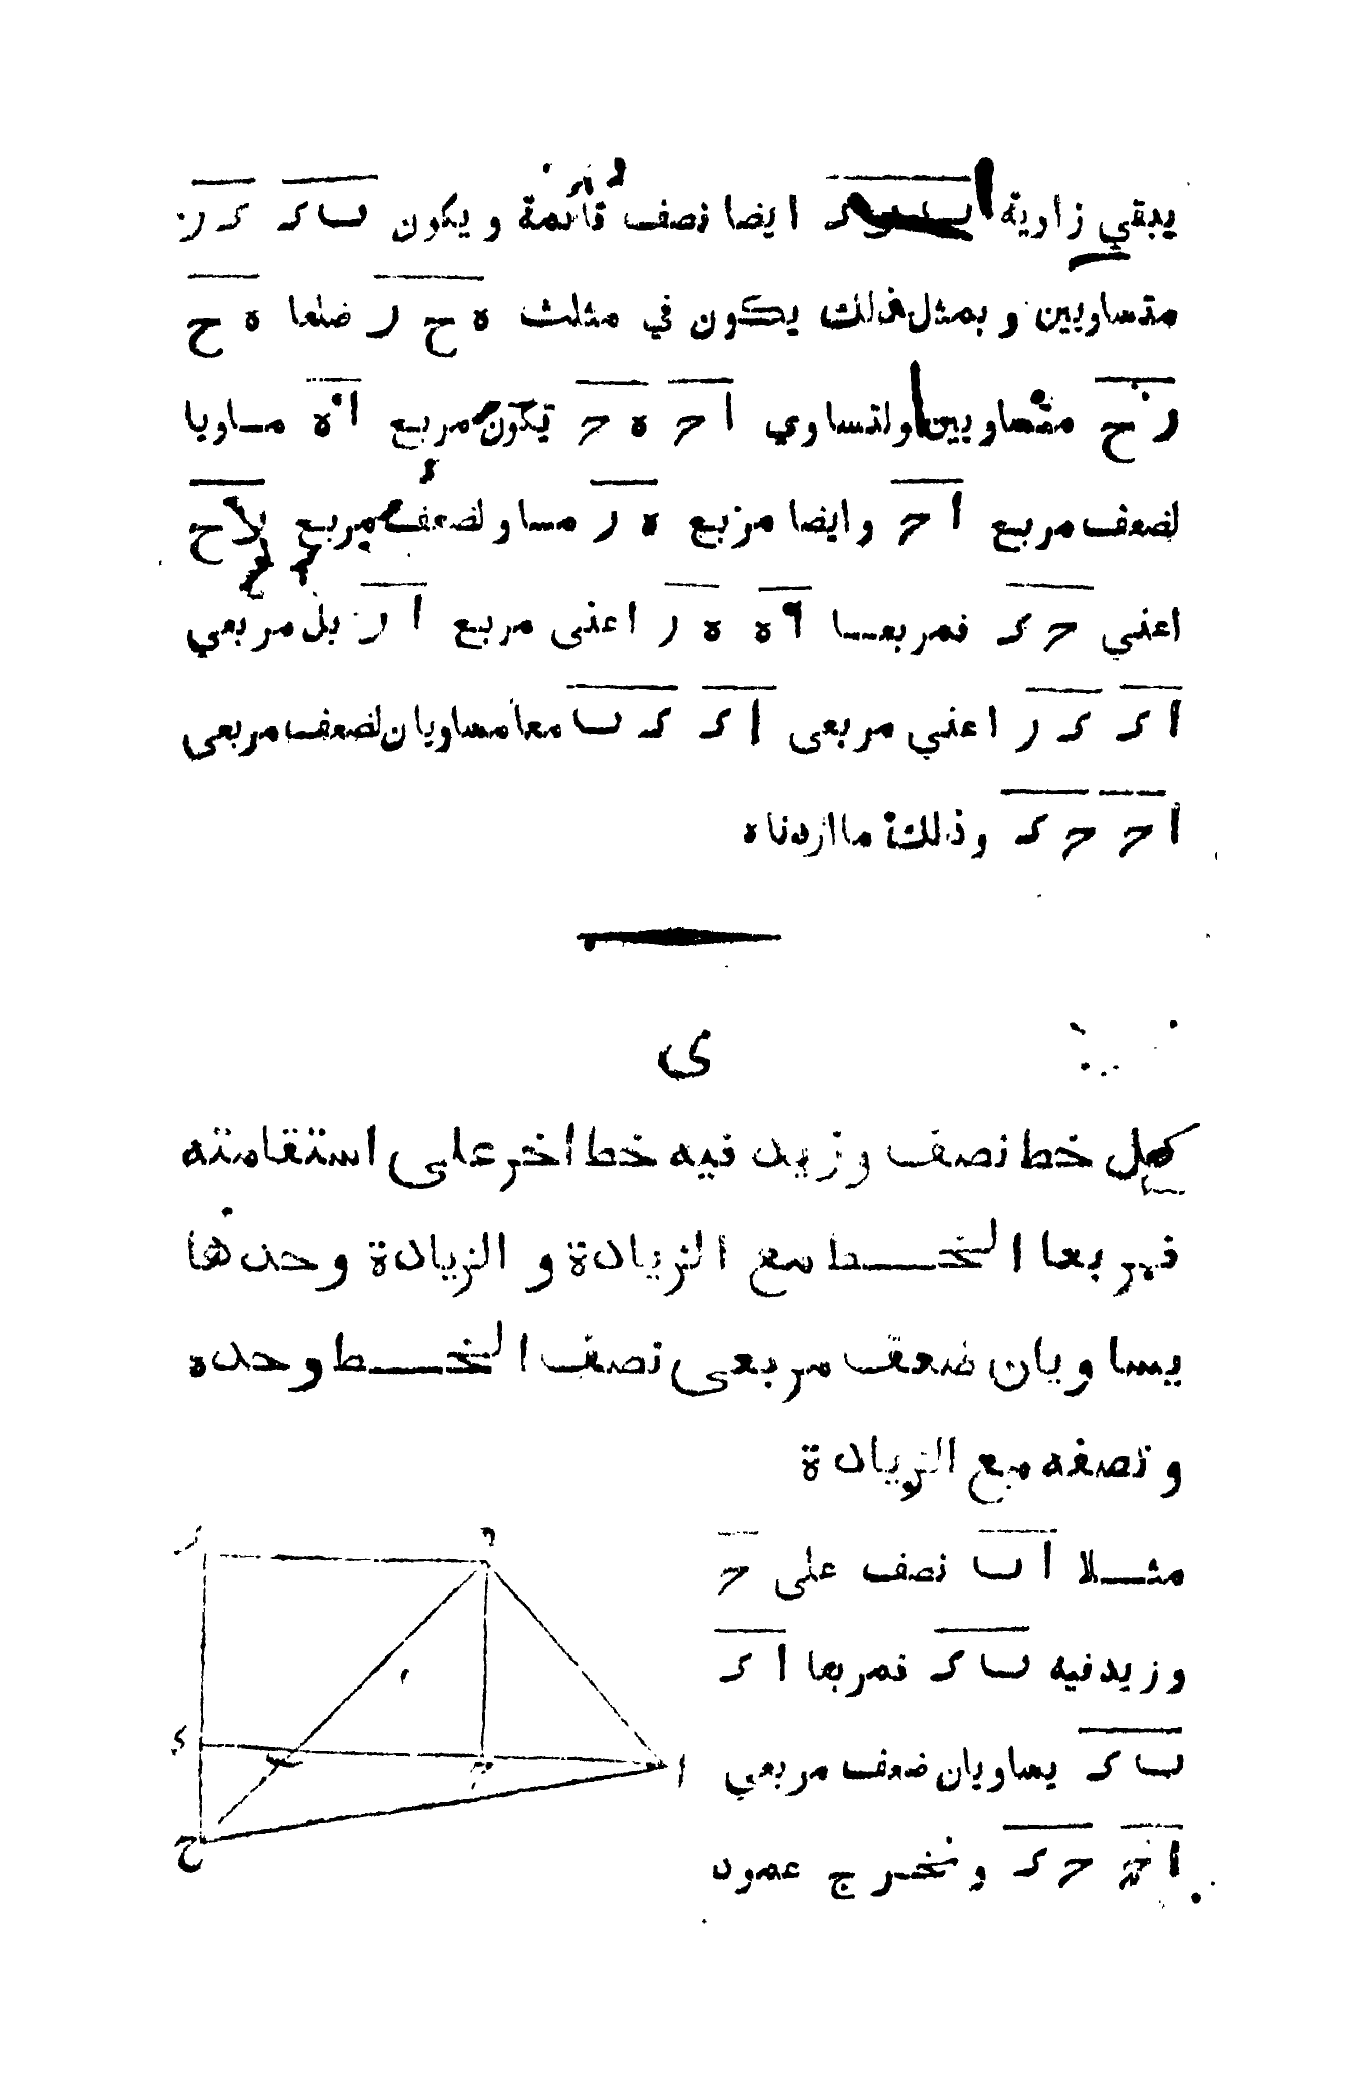 يبقي زاوية ايضا نصف قائمة و يكون ب د د ر
متساويين و بمثل ذلك يكون في مثلث ه ح ر ضلعا ه ح
ر ح متساويين ولتساوي ا ج ه ج تكون مربع ا ه مساويا
لضعف مربع ا ج وايضا مربع ه ر مساو لضعف مربع ح
اعني ج د فمربعا ا ه ه ر اعنى مربع ا ر بل مربعي
ا د د ر اعني مربعى ا د د ب معا مساويان لضعف مربعى
ا ج ج د وذلك ما اردناه
ى
كل خط نصف وزيد فيه خط اخر على استقامته
فمربعا الخط مع الزيادة و الزيادة وحدها
يساويان ضعف مربعى نصف الخط وحده
ونصفه مع الزيادة
مثلا ا ب نصف على ج
وزيد فيه ب د فمربعا ا د
ب د يساويان ضعف مربعي
ا ج ج د ونخرج عمود
ر ه
د ب ج ا
ح